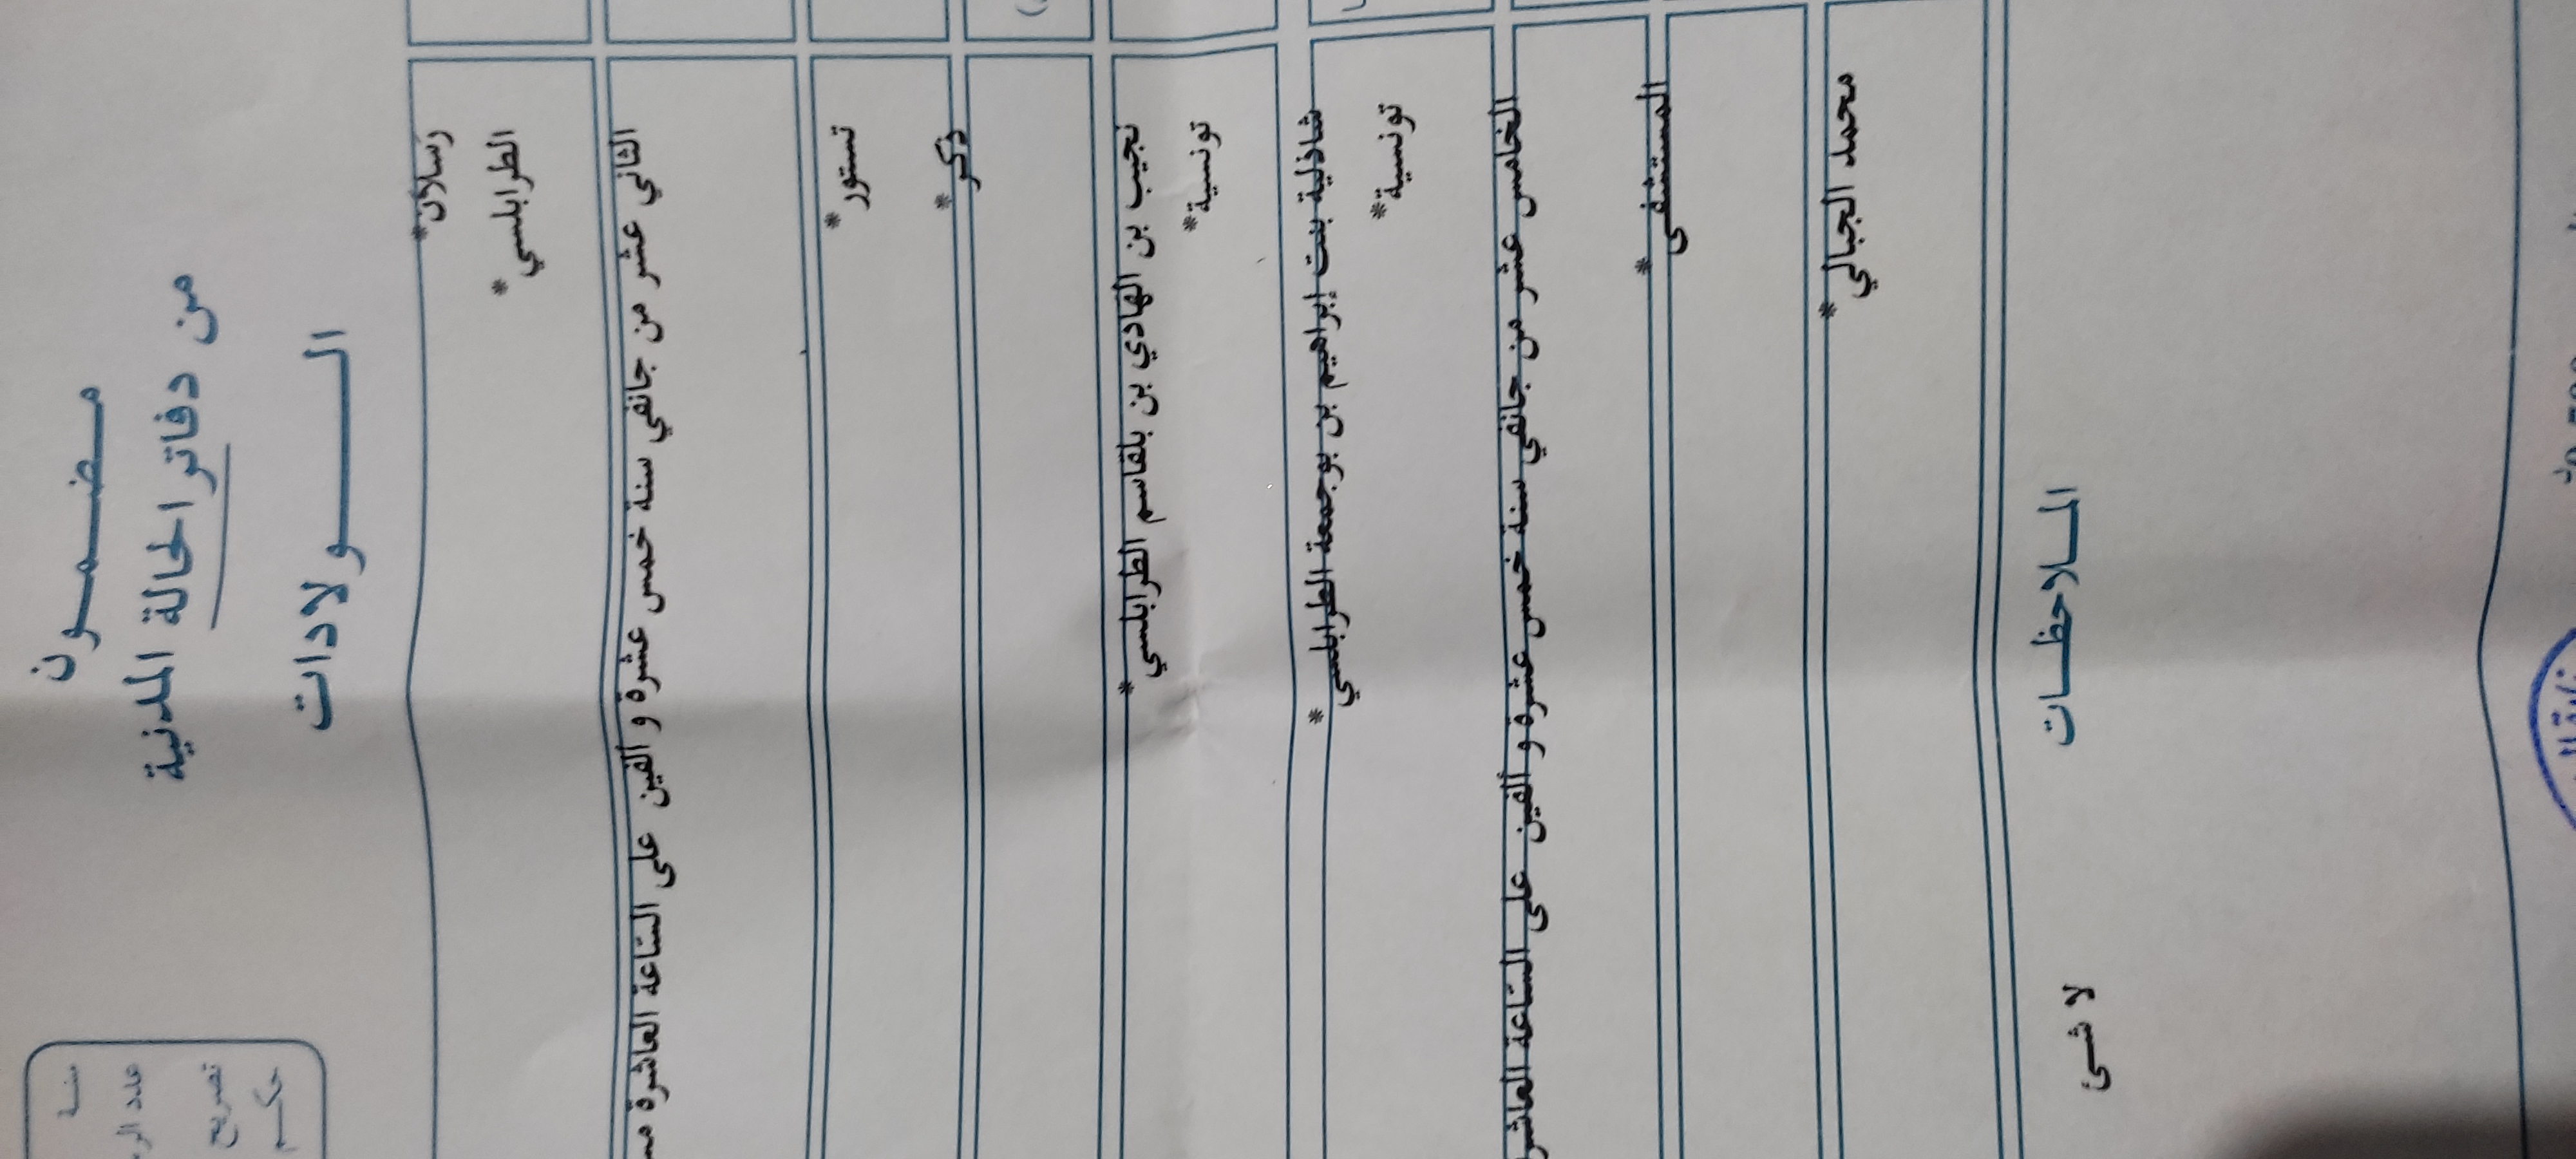 مضمون
من دفاتر الحالة المدنية
الولادات
سنة
تصريح
حكم
رسلان*
الطرابلسي*
الثاني عشر من جانفي سنة خمس عشرة و ألفين على الساعة العاشرة
تستور*
ذكر*
نجيب بن الهادي بن بلقاسم الطرابلسي*
تونسية*
شاذلية بنت إبراهيم بن بوجمعة الطرابلسي*
تونسية*
الخامس عشر من جانفي سنة خمس عشرة و ألفين على الساعة
المستشفى*
محمد الجبالي*
الملاحظات
لا شئ